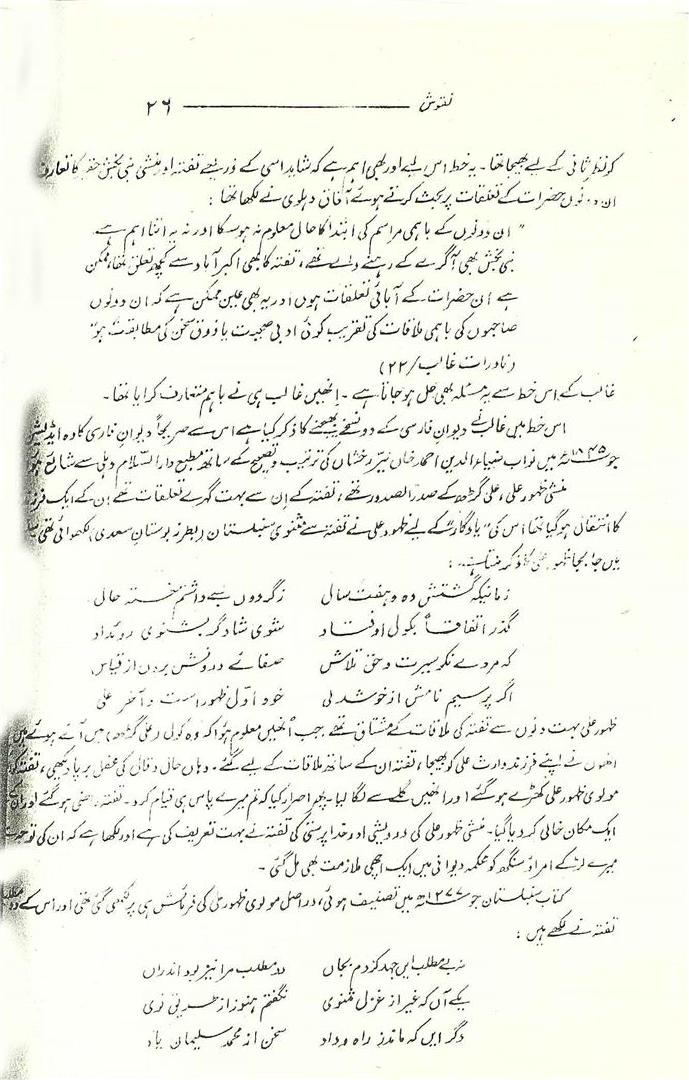 نقوش ــــــــــــــــ ۲۶
کو نظرِ ثانی کے لیے بھیجا تھا۔ یہ خط اس لیے اور بھی اہم ہے کہ شاید اسی کے ذریعے تفتہ اور منشی نبی بخش حقیر کا تعارف
ان دونوں حضرات کے تعلقات پر بحث کرتے ہوئے آفاق دہلوی نے لکھا تھا :
" ان دونوں کے باہمی مراسم کی ابتدا کا حال معلوم نہ ہو سکا اور نہ یہ اتنا اہم ہے
نبی بخش بھی آگرے کے رہنے والے تھے، تفتہ کا بھی اکبر آباد سے کچھ تعلق تھا، ممکن
ہے ان حضرات کے آبائی تعلقات ہوں اور یہ بھی عین ممکن ہے کہ ان دونوں
صاحبوں کی باہمی ملاقات کی تقریب کوئی ادبی صحبت یا ذوقِ سخن کی مطابقت ہو"
(نادرات غالب/۲۲)
غالب کے اس خط سے یہ مسئلہ بھی حل ہو جاتا ہے۔ انھیں غالب ہی نے باہم متعارف کرایا تھا۔
اس خط میں غالب نے دیوانِ فارسی کے دو نسخے بھیجنے کا ذکر کیا ہے اس سے صریحاً دیوانِ فارسی کا وہ ایڈیشن
جو ۱۸۴۵ء میں نواب ضیاء الدین احمد خاں نیّر رخشاں کی ترتیب و تصحیح کے ساتھ مطبع دار السّلام دہلی سے شایع ہوا
منشی ظہور علی، علی گڑھ کے صدر الصدور تھے، تفتہ کے ان سے بہت گہرے تعلقات تھے ان کے ایک فرزند
کا انتقال ہو گیا تھا اس کی "یادگار" کے لیے ظہور علی نے تفتہ سے مثنوی سنبلستان (بطرز بوستانِ سعدی) لکھوائی تھی
میں جا بجا ظہور علی کا ذکر ملتا ہے۔ :
زمانیکہ گشتش دہ و ہفت سال زگردوں بسے داشتم خستہ حال
گذر اتفاقاً بکول اوفتاد شوی شاد گر بشنوی رویداد
کہ مردے نکو سیرت و حق تلاش صفائے درونش بروں از قیاس
اگر پرسیم نامش از خوشدلی خود اوّل ظہور است و آخر علی
ظہور علی بہت دنوں سے تفتہ کی ملاقات کے مشتاق تھے جب انھیں معلوم ہوا کہ وہ کول (علی گڑھ) میں آئے ہوئے ہیں
انھوں نے اپنے فرزند وارث علی کو بھیجا، تفتہ ان کے ساتھ ملاقات کے لیے گئے۔ وہاں حال و قال کی محفل برپا دیکھی، تفتہ کو
مولوی ظہور علی کھڑے ہو گئے اور انھیں گلے سے لگا لیا۔ پیہم اصرار کیا کہ تم میرے پاس ہی قیام کرو۔ تفتہ راضی ہو گئے اور ان کے
ایک مکان خالی کر دیا گیا۔ منشی ظہور علی کی درویشی اور خدا پرستی کی تفتہ نے بہت تعریف کی ہے اور لکھا ہے کہ ان کی توجہ
میرے لڑکے امراؤ سنگھ کو محکمہ دیوانی میں ایک اچھی ملازمت بھی مل گئی۔
کتاب سنبلستان جو ۱۲۷۷ھ میں تصنیف ہوئی، در اصل مولوی ظہور علی کی فرمائش ہی پر لکھی گئی تھی اور اس کے دو مطلب
تفتہ نے لکھے ہیں :
نہ بے مطلب ایں جہد کردم بجاں دو مطلب مرا نیز بود اندراں
یکے آں کہ غیر از غزل مثنوی نگفتم ہنوز از طریقِ نوی
دگر ایں کہ ماند ز راہ وداد سخن از محمد سلیمان یاد